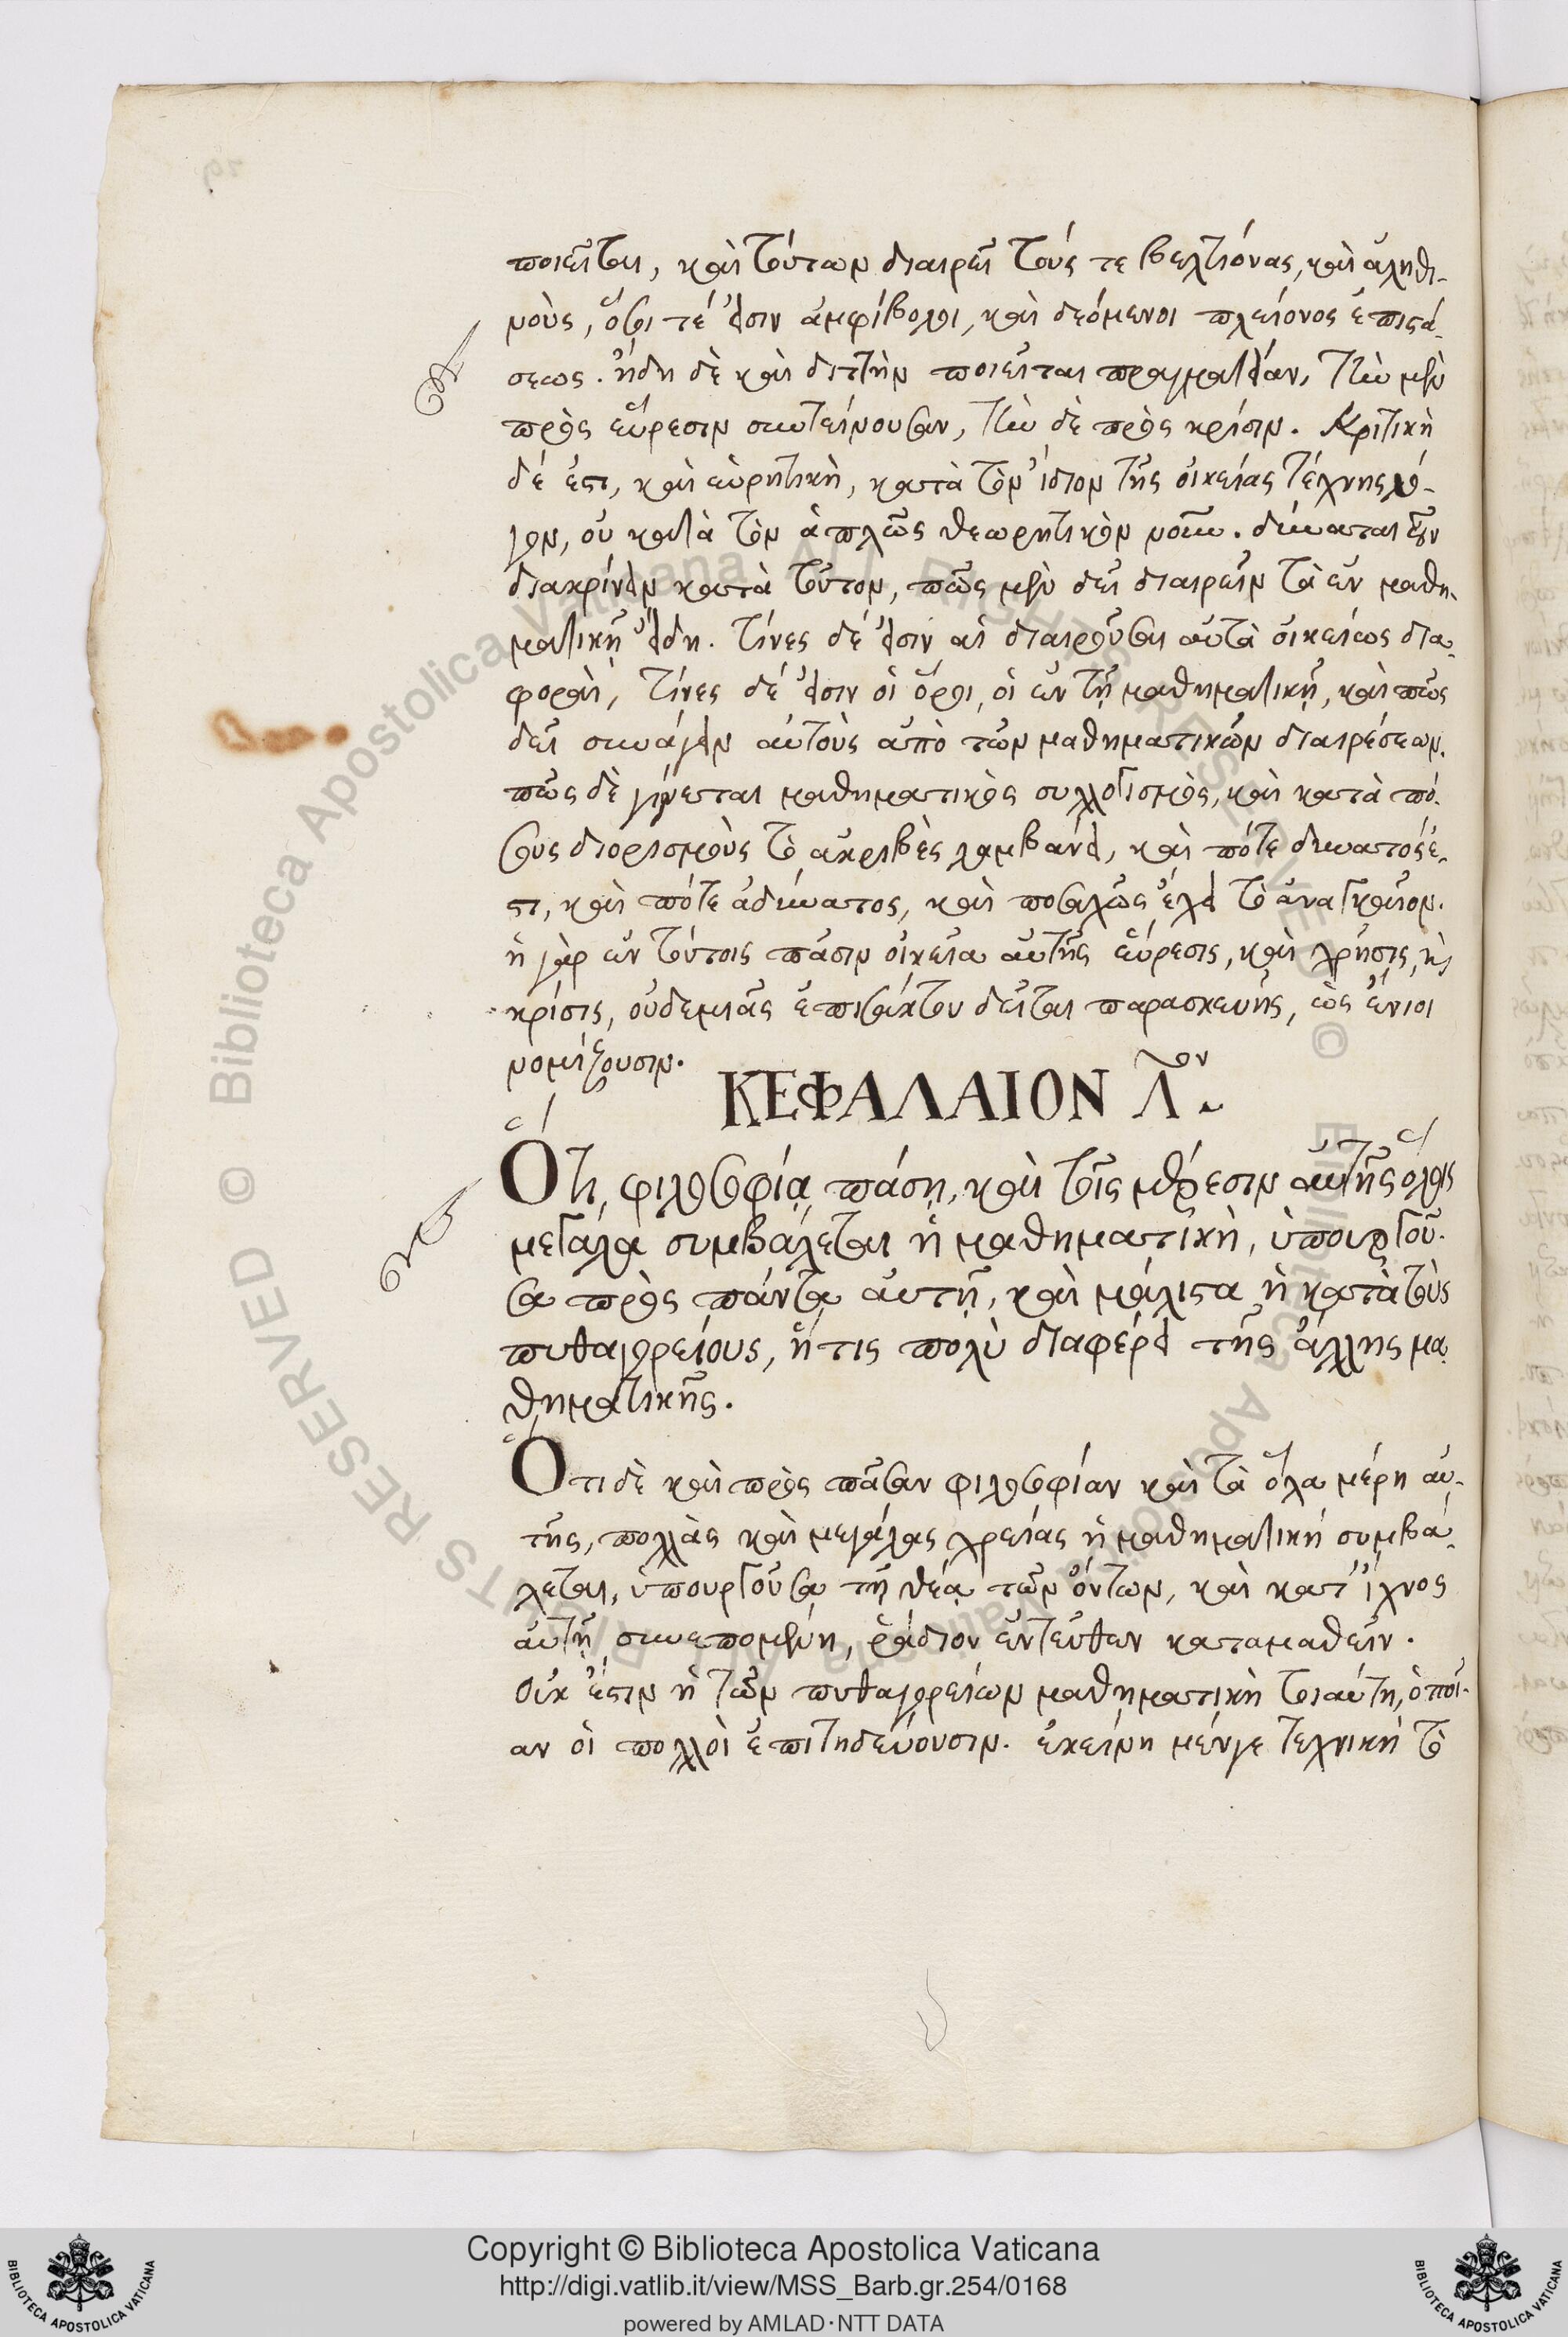 ποιεῖται, καὶ τούτων διαιρεῖ τούς τε βελτιόνας, καὶ ἀληθι-
νοὺς, ὅσοι τέ εἰσιν ἀμφίβολοι, καὶ δεόμενοι πλείονος ἐπιστά-
σεως. ἤδη δὲ καὶ διττὴν ποιεῖται πραγματείαν, τὴν μὲν
πρὸς εὕρεσιν συντείνουσαν, τὴν δὲ πρὸς κρίσιν. Κριτικὴ
δέ ἐστι, καὶ εὑρητικὴ, κατὰ τὸν ἴδιον τῆς οἰκείας τέχνης λό-
γον, οὐ κατὰ τὸν ἁπλῶς θεωρητικὸν νοῦν. δύναται οὖν
διακρίνειν κατὰ τοῦτον, πῶς μὲν δεῖ διαιρεῖν τὰ ἐν μαθη-
ματικῇ εἴδη. τίνες δέ εἰσιν αἱ διαιροῦσαι αὐτὰ οἰκείως δια-
φοραὶ, τίνες δέ εἰσιν οἱ ὅροι, οἱ ἐν τῇ μαθηματικῇ, καὶ πῶς
δεῖ συνάγειν αὐτοὺς ἀπὸ τῶν μαθηματικῶν διαιρέσεων.
πῶς δὲ γίνεται μαθηματικὸς συλλογισμὸς, καὶ κατὰ πό-
σους διορισμοὺς τὸ ἀκριβὲς λαμβάνει, καὶ πότε δυνατός ἐ-
στι, καὶ πότε ἀδύνατος, καὶ ποσαχῶς ἔχει τὸ ἀναγκαῖον.
ἡ γὰρ ἐν τούτοις πᾶσιν οἰκεία αὐτῆς εὕρεσις, καὶ χρῆσις, καὶ
κρίσις, οὐδεμιᾶς ἐπιτάκτου δεῖται παρασκευῆς, ὡς ἔνιοι
νομίζουσιν.
ΚΕΦΑΛΑΙΟΝ Λ^ον.
Ὅτι φιλοσοφίᾳ πάσῃ, καὶ τοῖς μέρεσιν αὐτῆς ὅλοις
μεγάλα συμβάλεται ἡ μαθηματικὴ, ὑπουργοῦ-
σα πρὸς πάντα αὐτῇ, καὶ μάλιστα ἡ κατὰ τοὺς
πυθαγορείους, ἥτις πολὺ διαφέρει τῆς ἄλλης μα-
θηματικῆς.
Ὅτι δὲ καὶ πρὸς πᾶσαν φιλοσοφίαν καὶ τὰ ὅλα μέρη αὐ-
τῆς, πολλὰς καὶ μεγάλας χρείας ἡ μαθηματική συμβά-
λεται, ὑπουργοῦσα τῇ θέᾳ τῶν ὄντων, καὶ κατ' ἴχνος
αὐτῇ συνεπομένη, ῥάδιον ἐντεῦθεν καταμαθεῖν.
Οὐκ ἔστιν ἡ τῶν πυθαγορείων μαθηματικὴ τοιαύτη, ὁποί-
αν οἱ πολλοὶ ἐπιτηδεύουσιν. ἐκείνη μένγε τεχνική τὸ
Copyright © Biblioteca Apostolica Vaticana
http://digi.vatlib.it/view/MSS_Barb.gr.254/0168
powered by AMLAD·NTT DATA